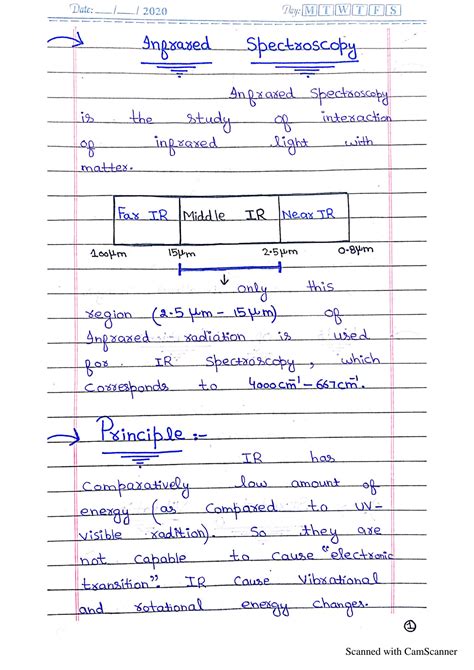 Date: __/__/2020 Day: M T W T F S
Infrared Spectroscopy
Infrared Spectroscopy
is the study of interaction
of infrared light with
matter.
Far IR Middle IR Near IR
100μm 15μm 2.5μm 0.8μm
only this
region (2.5 μm - 15 μm) of
Infrared radiation is used
for IR Spectroscopy, which
Corresponds to 4000cm⁻¹ - 667cm⁻¹.
Principle :-
IR has
Comparatively low amount of
energy (as Compared to UV-
Visible radition). So they are
not capable to cause "electronic
transition". IR Cause Vibrational
and rotational energy changes.
1
Scanned with CamScanner